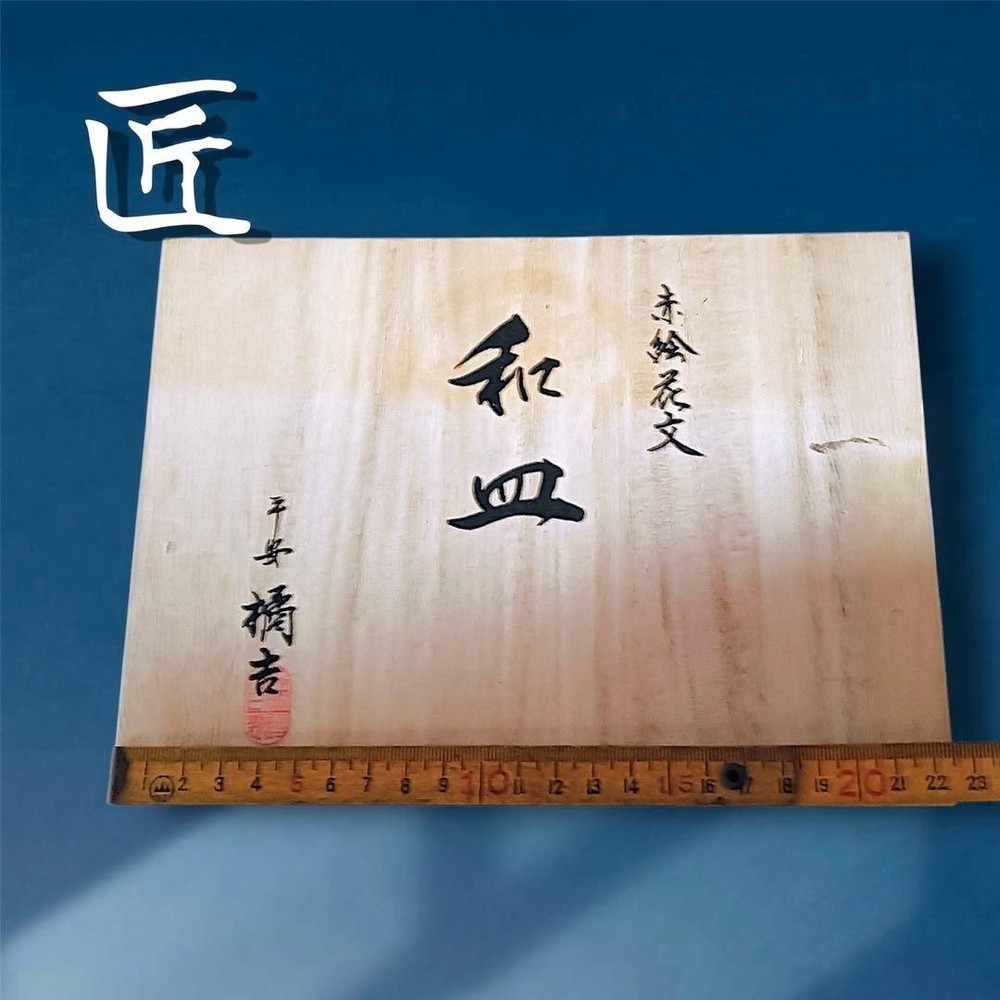 匠
赤絵花文
和皿
平安 橘吉
1 2 3 4 5 6 7 8 9 10 11 12 13 14 15 16 17 18 19 20 21 22 23